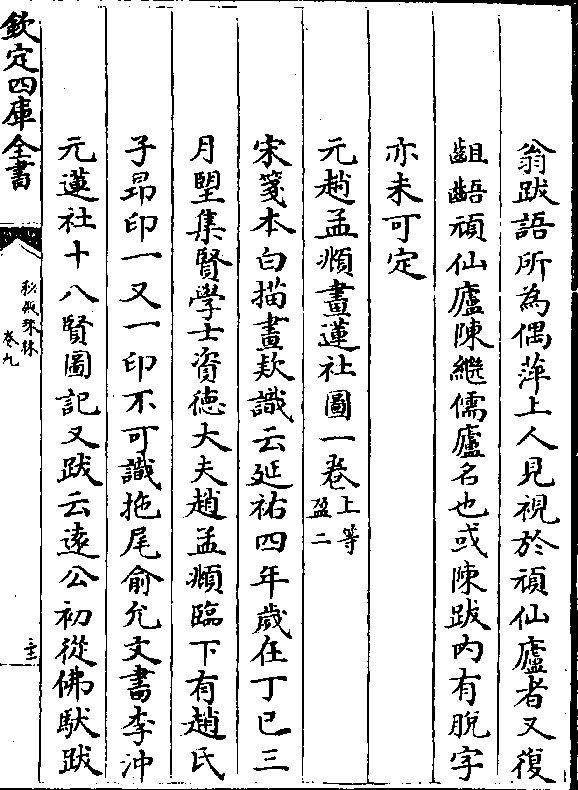 翁跋語所為偶萍上人見視於頑仙廬者又復
齟齬頑仙廬陳繼儒廬名也或陳跋內有脫字
亦未可定
元趙孟頫畫蓮社圖一卷上等盈二
宋箋本白描畫款識云延祐四年歲在丁巳三
月望集賢學士資德大夫趙孟頫臨下有趙氏
子昂印一又一印不可識拖尾俞允文書李沖
元蓮社十八賢圖記又跋云遠公初從佛馱跋
欽定四庫全書
秘殿珠林
卷九